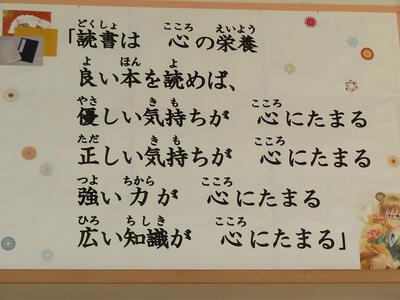 「読書は 心の栄養
良い本を読めば、
優しい気持ちが 心にたまる
正しい気持ちが 心にたまる
強い力が 心にたまる
広い知識が 心にたまる」